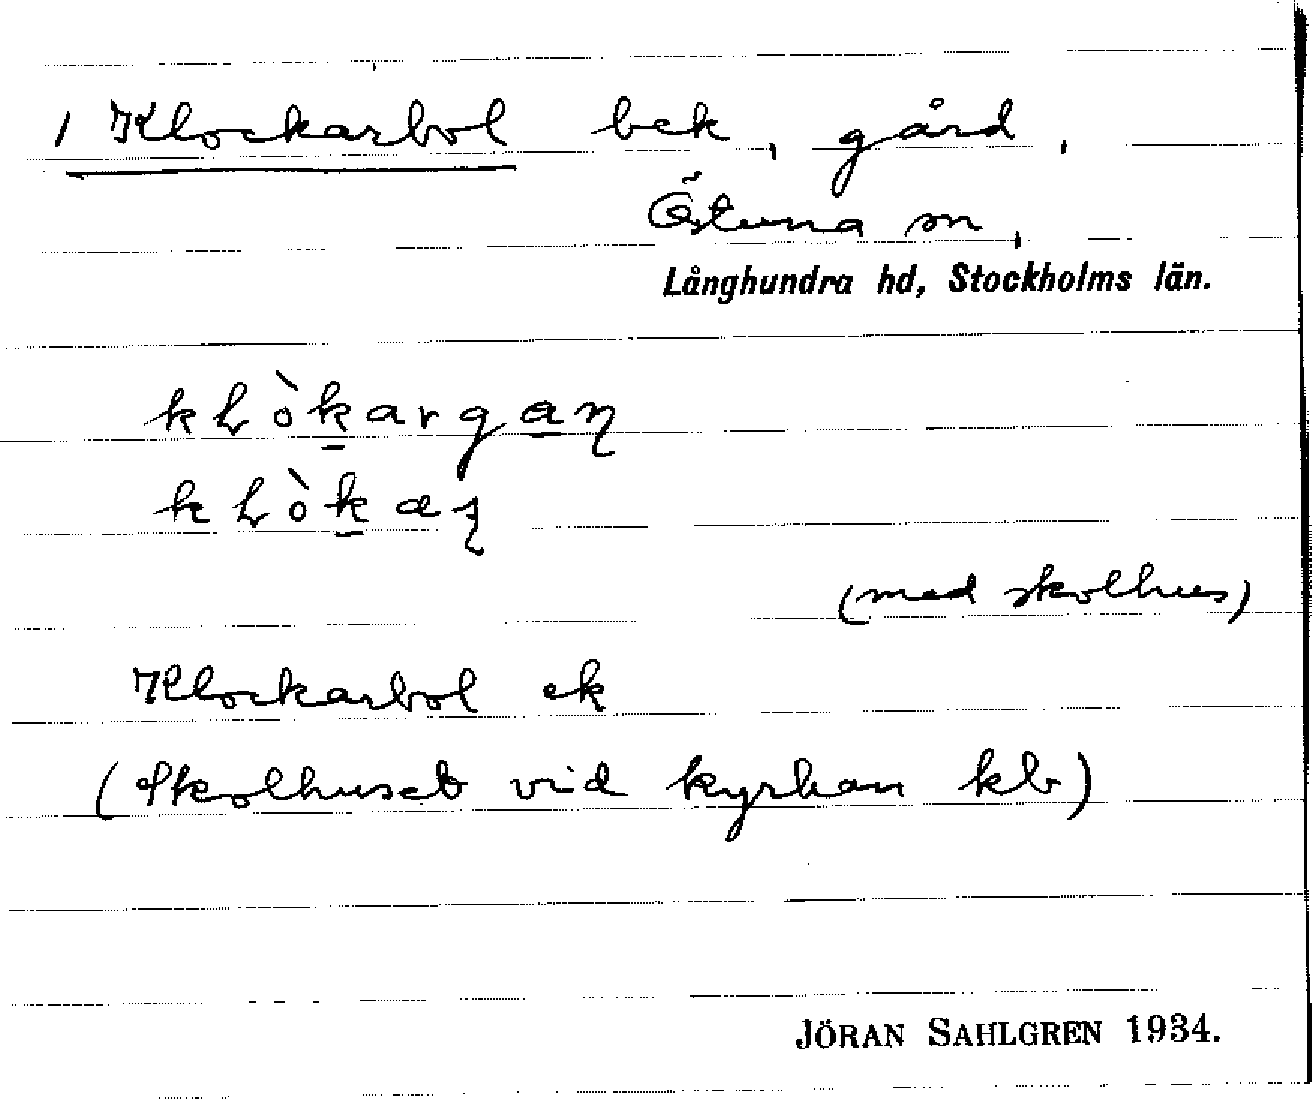 1 Klockarbol bek, gård,
Östuna sn,
Långhundra hd, Stockholms län.
kɫòkargaɳ
kɫòkaʐ
(med skolhus)
Klockarbol ek
(Skolhuset vid kyrkan kb)
JÖRAN SAHLGREN 1934.